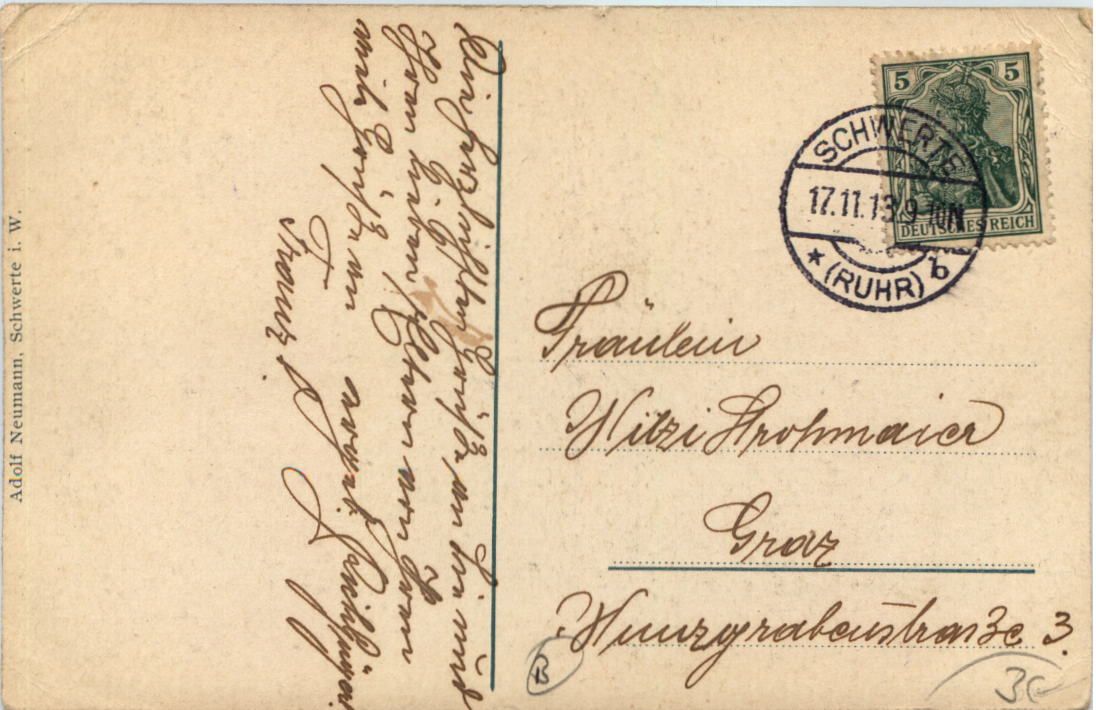 Adolf Neumann, Schwerte i. W.
herzlichsten Grüße, an Sie und
Ihren lieben Eltern von Ihren
Franz
5 5
DEUTSCHES REICH
SCHWERTE
17.11.13 9-10N
* (RUHR) b
Fräulein
Mitzi Strohmaier
Graz
Munzgrabenstraße 3.
B